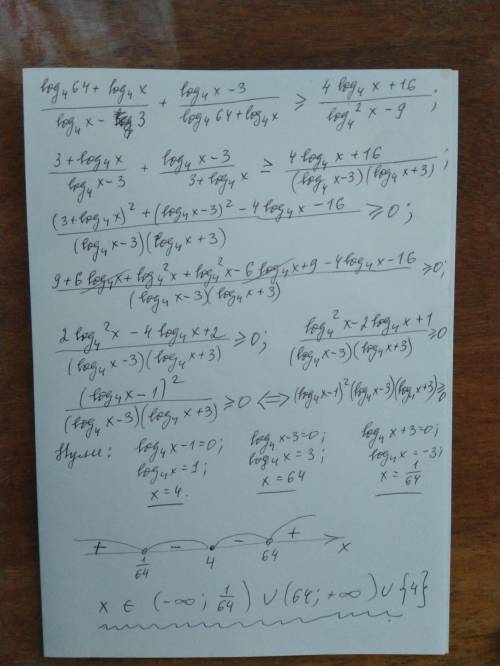 (log₄64 + log₄x)/(log₄x - 3) + (log₄x - 3)/(log₄64 + log₄x) ≥ (4log₄x + 16)/(log₄²x - 9);
(3 + log₄x)/(log₄x - 3) + (log₄x - 3)/(3 + log₄x) ≥ (4log₄x + 16)/((log₄x - 3)(log₄x + 3));
((3 + log₄x)² + (log₄x - 3)² - 4log₄x - 16)/((log₄x - 3)(log₄x + 3)) ≥ 0;
(9 + 6log₄x + log₄²x + log₄²x - 6log₄x + 9 - 4log₄x - 16)/((log₄x - 3)(log₄x + 3)) ≥ 0;
(2log₄²x - 4log₄x + 2)/((log₄x - 3)(log₄x + 3)) ≥ 0; (log₄²x - 2log₄x + 1)/((log₄x - 3)(log₄x + 3)) ≥ 0
(log₄x - 1)²/((log₄x - 3)(log₄x + 3)) ≥ 0 <=> (log₄x - 1)²(log₄x - 3)(log₄x + 3) ≥ 0
Нули: log₄x - 1 = 0; log₄x - 3 = 0; log₄x + 3 = 0;
log₄x = 1; log₄x = 3; log₄x = -3;
x = 4. x = 64 x = 1/64
+ - - +
1/64 4 64 x
x ∈ (-∞; 1/64) ∪ (64; +∞) ∪ {4}